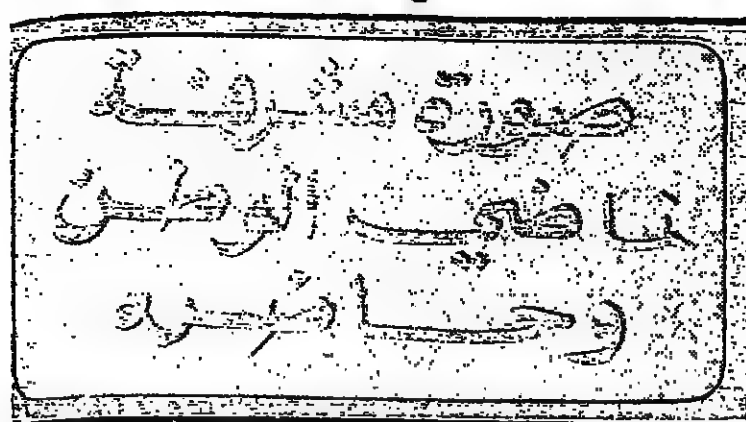 صورة مشرفة
لماضي الوطن
وحاضره